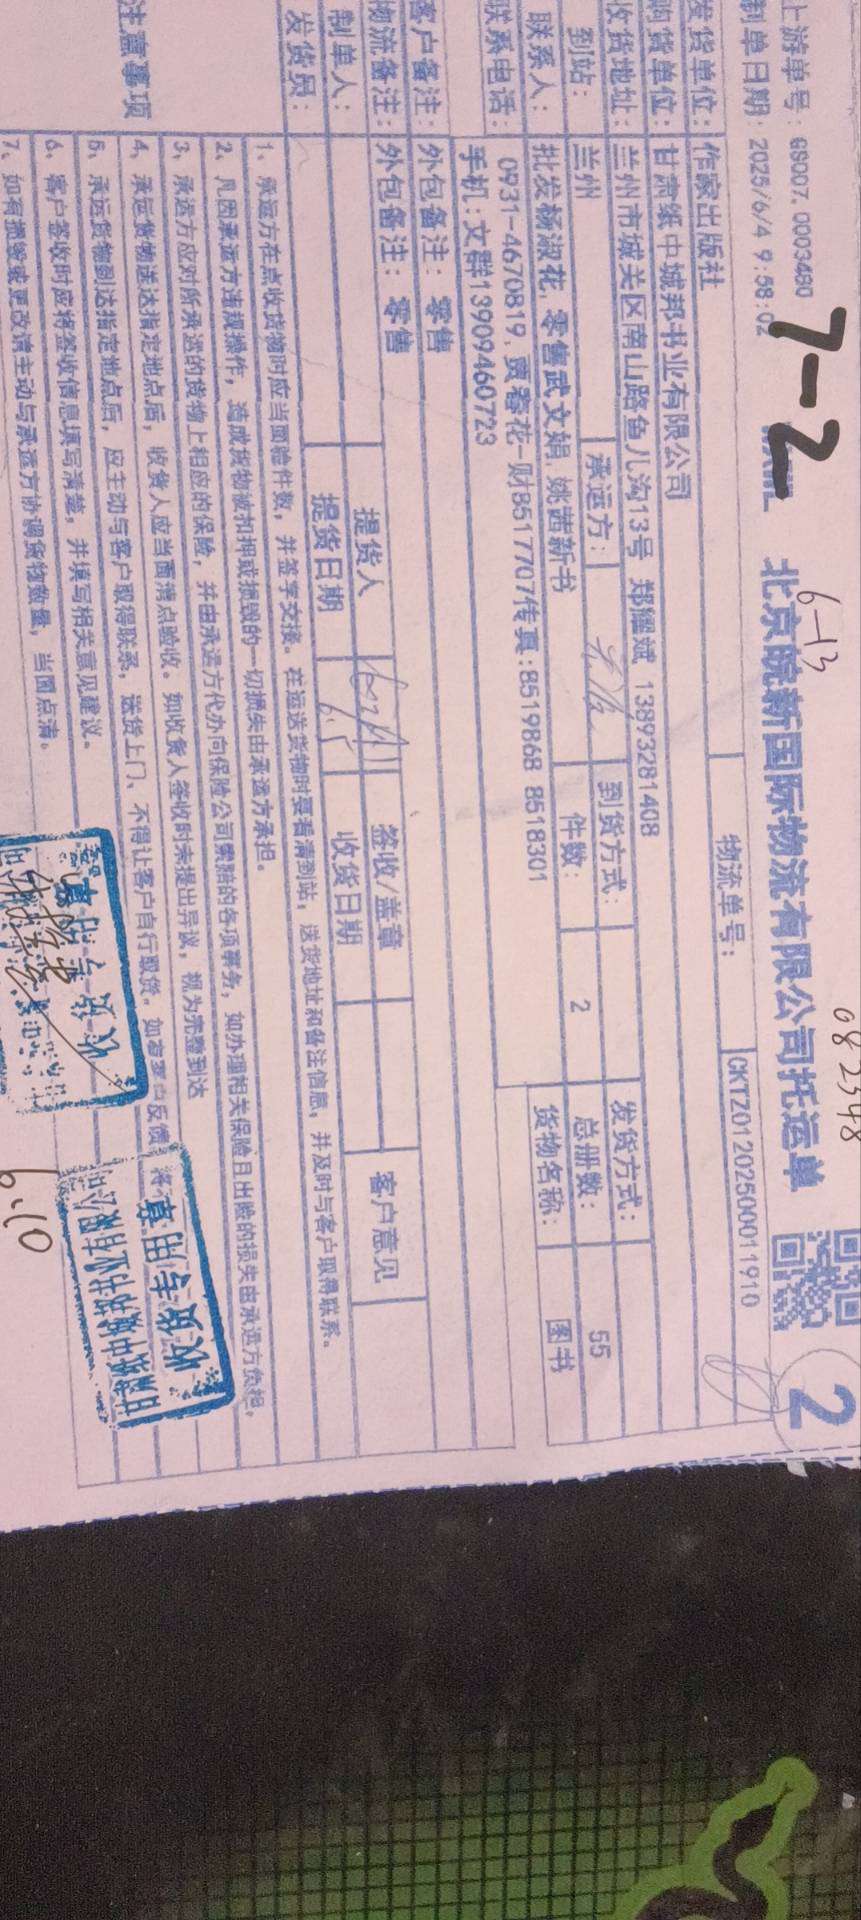 7-2
6-13
082548
北京皖新国际物流有限公司托运单
2
上游单号: GS007.0003480
制单日期: 2025/6/4 9:58:02
物流单号: CKTZ01202500011910
发货单位: 作家出版社
购货单位: 甘肃纸中城邦书业有限公司
收货地址: 兰州市城关区南山路鱼儿沟13号 郑耀斌 13893281408
到站: 兰州 承运方: 到货方式: 发货方式:
件数: 2 总册数: 55
联系人: 批发杨淑花, 零售武文娟, 姚茜新书 货物名称: 图书
联系电话: 0931-4670819, 贾春花-财8517707传真:8519868 8518301
手机:文群13909460723
客户备注: 外包备注: 零售
物流备注: 外包备注: 零售
制单人: 提货人 签收/盖章 客户意见
发货员: 提货日期 6.5 收货日期
注意事项
1、承运方在点收货物时应当面验件数,并签字交接。在运送货物时要看清到站,送货地址和备注信息,并及时与客户取得联系。
2、凡因承运方违规操作,造成货物被扣押或损毁的一切损失由承运方承担。
3、承运方应对所承运的货物上相应的保险,并由承运方代办向保险公司索赔的各项事务,如办理相关保险且出险的损失由承运方负担。
4、承运货物送达指定地点后,收货人应当面清点验收。如收货人签收时未提出异议,视为完整到达
5、承运货物到达指定地点后,应主动与客户取得联系,送货上门、不得让客户自行取货。如有客户反馈
6、客户签收时应将签收信息填写清楚,并填写相关意见建议。
7、如有损毁或更改请主动与承运方协调货物数量,当面点清。
甘肃纸中城邦书业有限公司
收货专用章
6.10